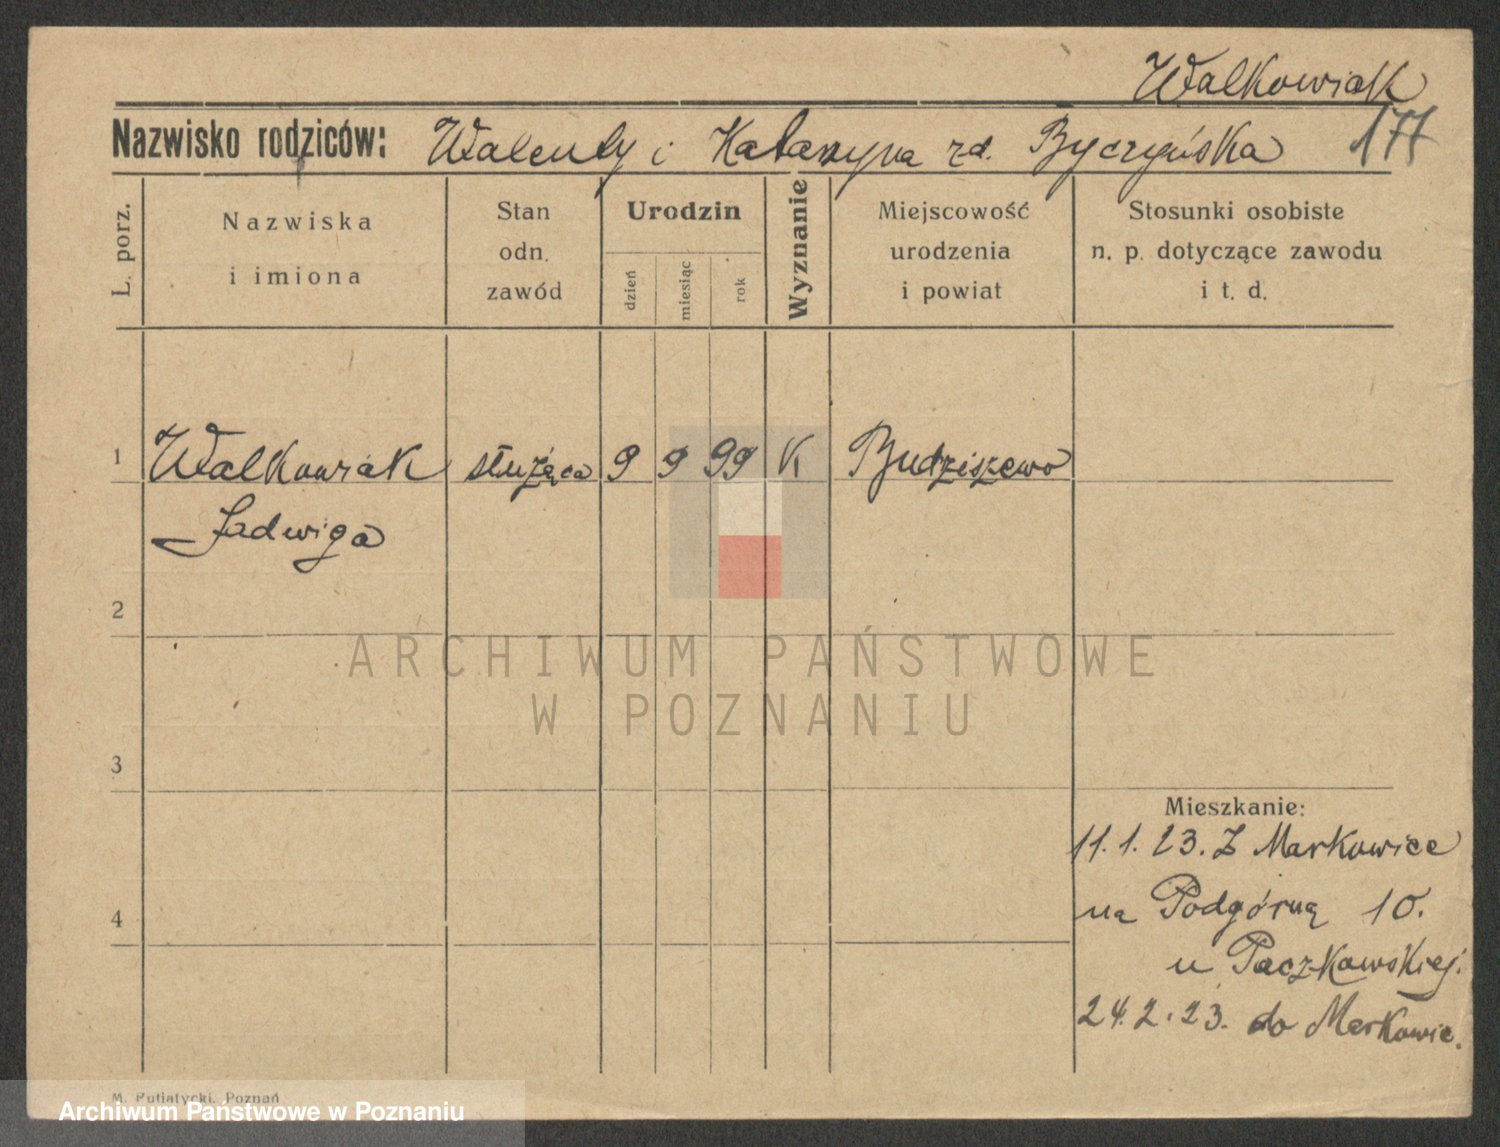 Walkowiak
Nazwisko rodziców: Walenty i Katarzyna zd. Byczyńska 177
L. porz.
Nazwiska
i imiona
Stan
odn.
zawód
Urodzin
dzień
miesiąc
rok
Wyznanie
Miejscowość
urodzenia
i powiat
Stosunki osobiste
n. p. dotyczące zawodu
i t. d.
1 Walkowiak służąca 9 9 99 K Budziszewo
Jadwiga
2
ARCHIWUM PAŃSTWOWE
W POZNANIU
3
Mieszkanie:
11.1.23. Z Markowice
4 na Podgórną 10.
u Paczkowskiej.
24.2.23. do Markowic.
M. Putiatycki, Poznań
Archiwum Państwowe w Poznaniu